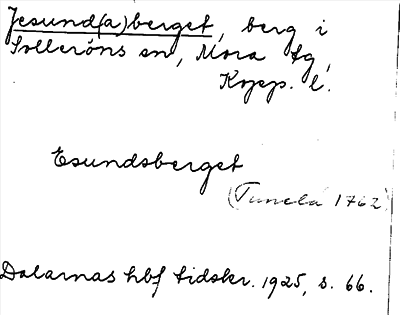 Jesund(a)berget, berg i
Solleröns sn, Mora tg,
Kopp. l.
Esundsberget
(Tuneld 1762)
Dalarnas hbf tidskr. 1925, s. 66.